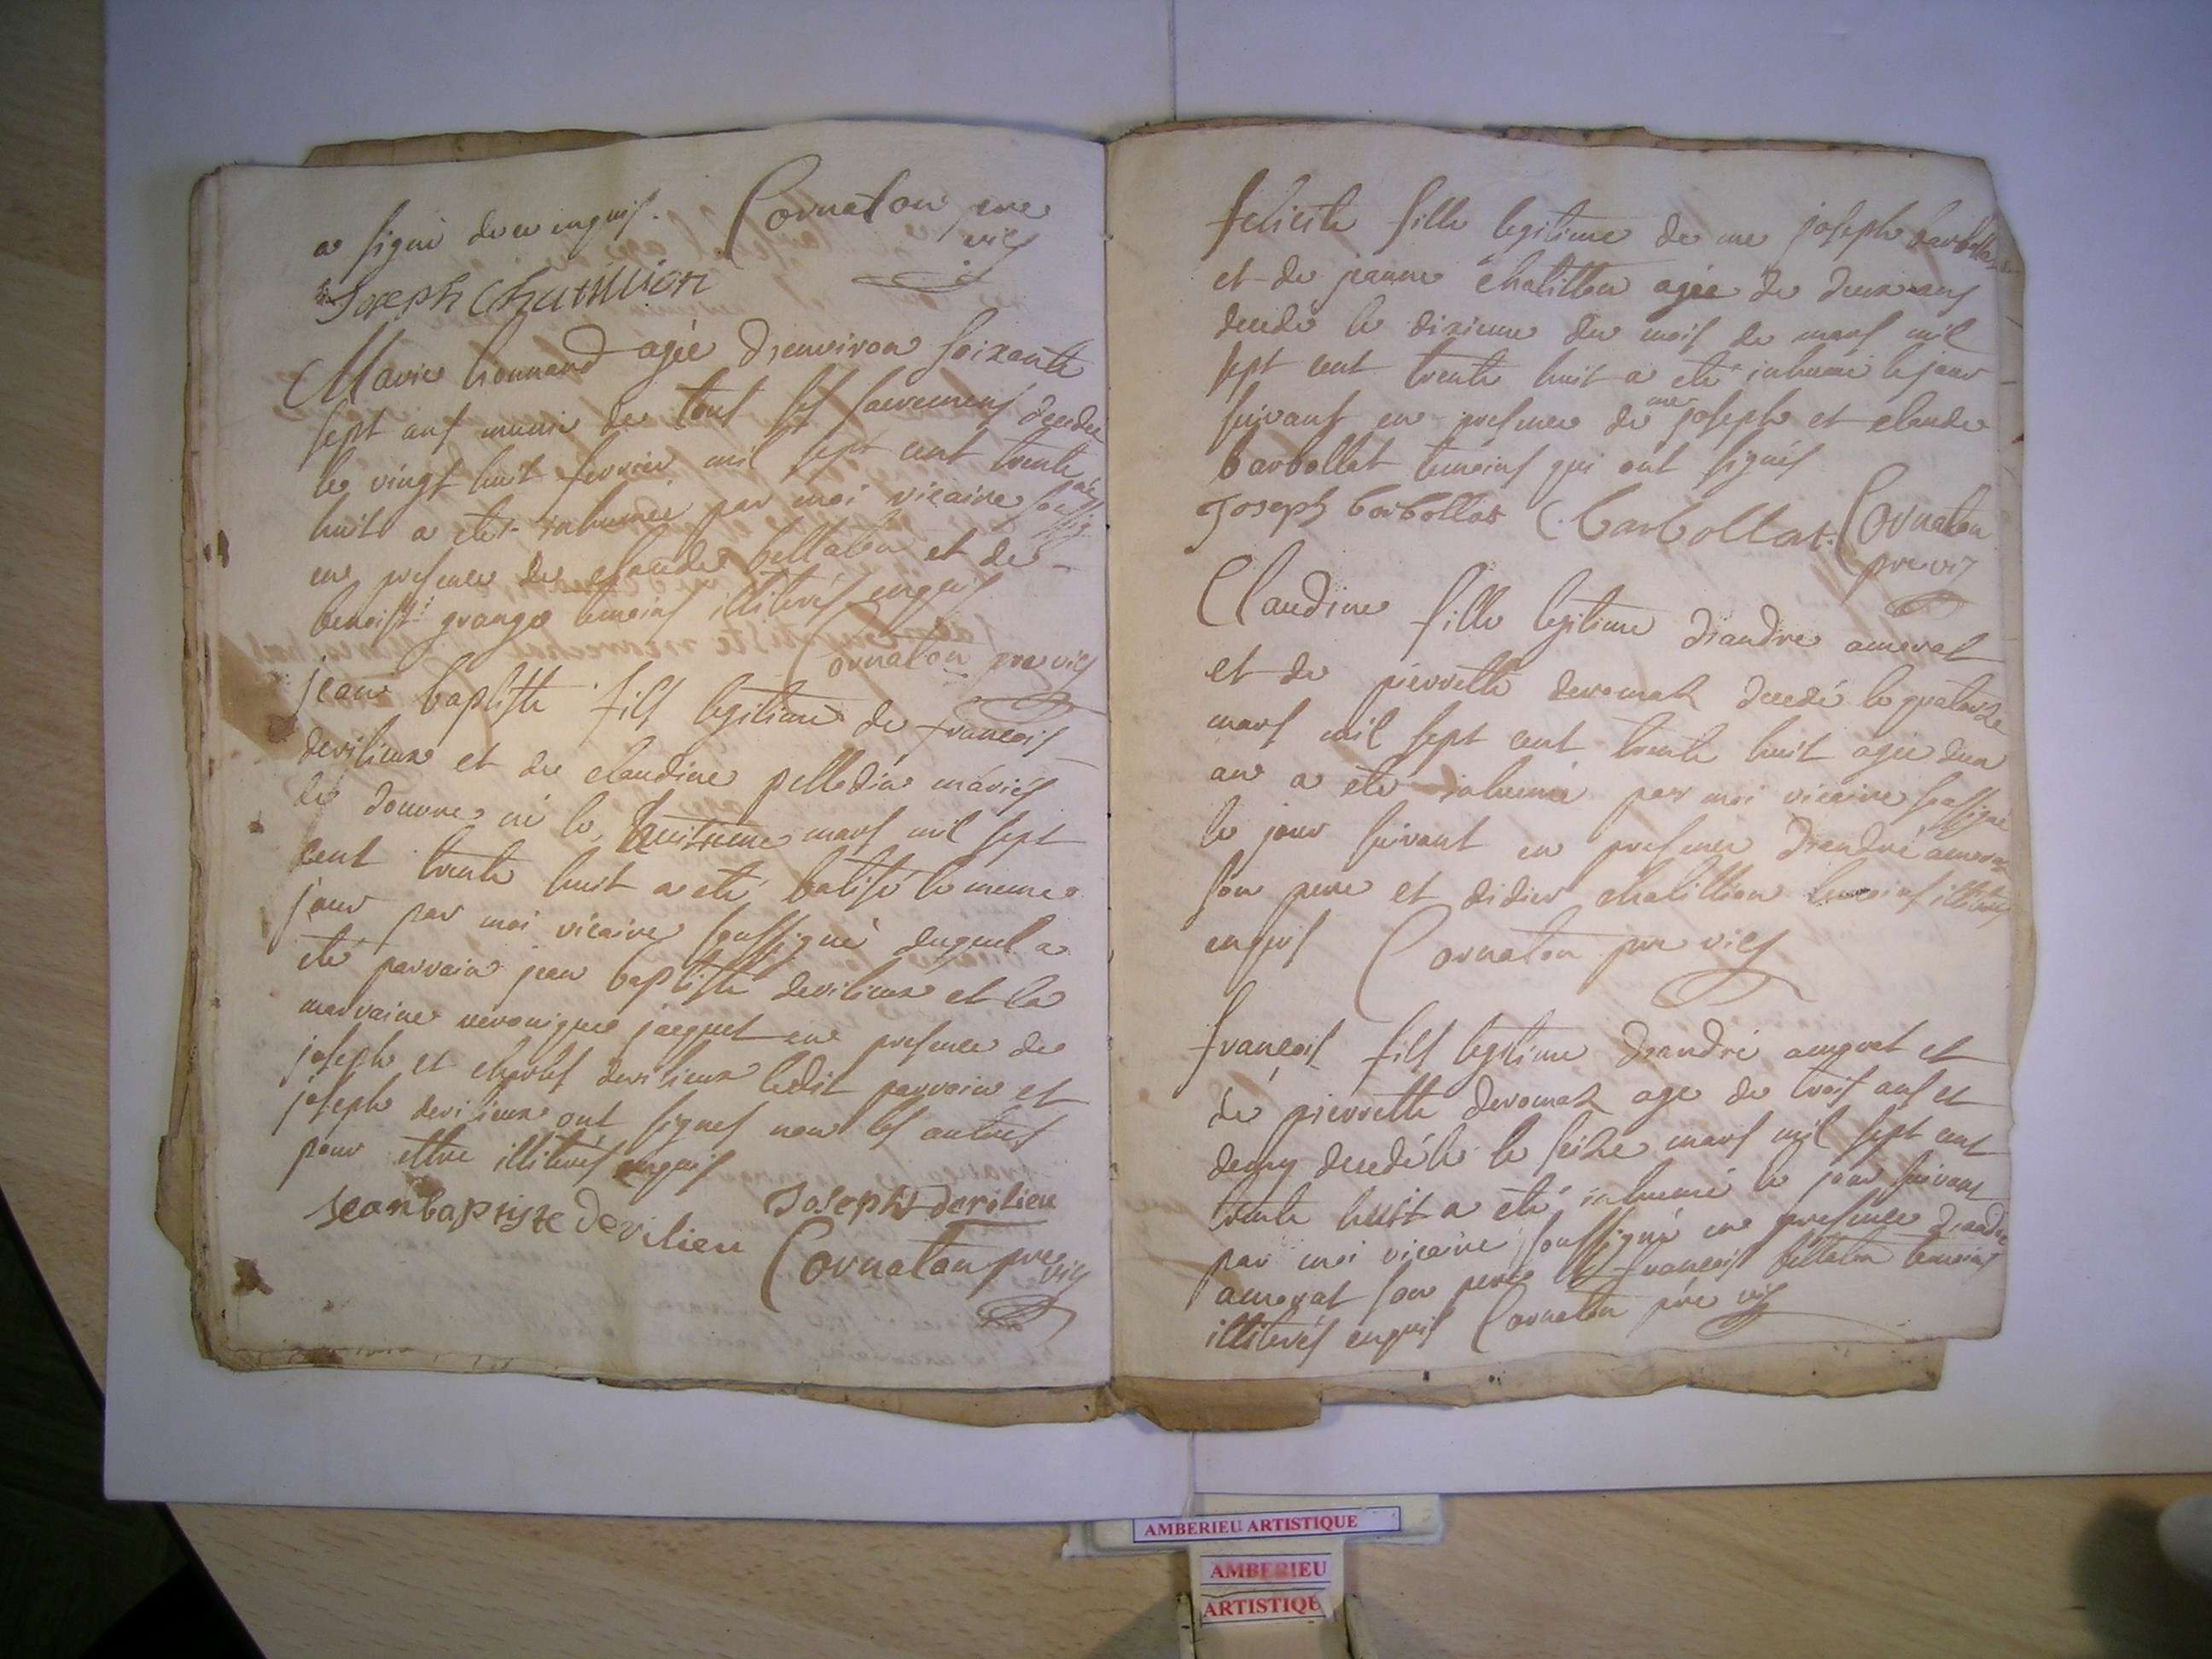 a signé de ce enquis. Cornaton pre
vic
Joseph Chatillion
Marie bonnard agée d'environ soixante
sept ans munie de tous ses sacremens decedée
le vingt huit fevrier mil sept cent trente
huit a eté inhumée par moi vicaire soussigné
en presence de claude bellaton et de
benoist grange temoins illiterés enquis
Cornaton pre vic
jean baptiste fils legitime de francois
derilieux et de claudine pelledin mariés
de douvre né le huitieme mars mil sept
cent trente huit a eté batisé le meme
jour par moi vicaire soussigné duquel a
eté parrain jean baptiste derilieux et la
marraine veronique jacquet en presence de
joseph et charles derilieux ledit parrain et
joseph derilieux ont signes non les autres
pour ettre illiterés enquis
Jean baptiste Derilieu Joseph derilieu
Cornaton pre vic
felicite fille legitime de me joseph barbollat
et de jeanne chatillon agée de deux ans
decede le dixieme du mois de mars mil
sept cent trente huit a eté inhumé le jour
suivant en presence de me joseph et claude
barbollat temoins qui ont signés
Joseph barbollat C. barbollat. Cornaton
pre vic
Claudine fille legitime d'andre amerat
et de pierrette deromas decedé le quatorze
mars mil sept cent trente huit agée d'un
an a eté inhumée par moi vicaire soussigné
le jour suivant en presence d'andré amerat
son pere et didier chatillion temoins illiterés
enquis Cornaton pre vic
francois fils legitime d'andré amerat et
de pierrette deromas age de trois ans et
demy decedé le seize mars mil sept cent
trente huit a eté inhumé le jour suivant
par moi vicaire soussigné en presence d'andré
amerat son pere et francois bellaton temoins
illiterés enquis Cornaton pre vic
AMBERIEU ARTISTIQUE
AMBERIEU
ARTISTIQUE